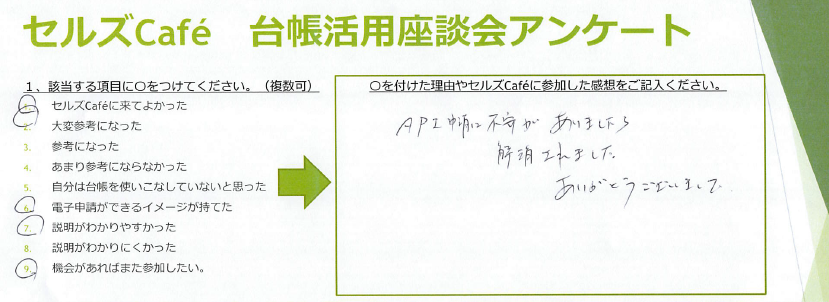 セルズCafé 台帳活用座談会アンケート
1、該当する項目に〇をつけてください。（複数可）
1. セルズCaféに来てよかった
2. 大変参考になった
3. 参考になった
4. あまり参考にならなかった
5. 自分は台帳を使いこなしていないと思った
6. 電子申請ができるイメージが持てた
7. 説明がわかりやすかった
8. 説明がわかりにくかった
9. 機会があればまた参加したい。
〇を付けた理由やセルズCaféに参加した感想をご記入ください。
API申請に不安がありましたら
解消されました
ありがとうございまして